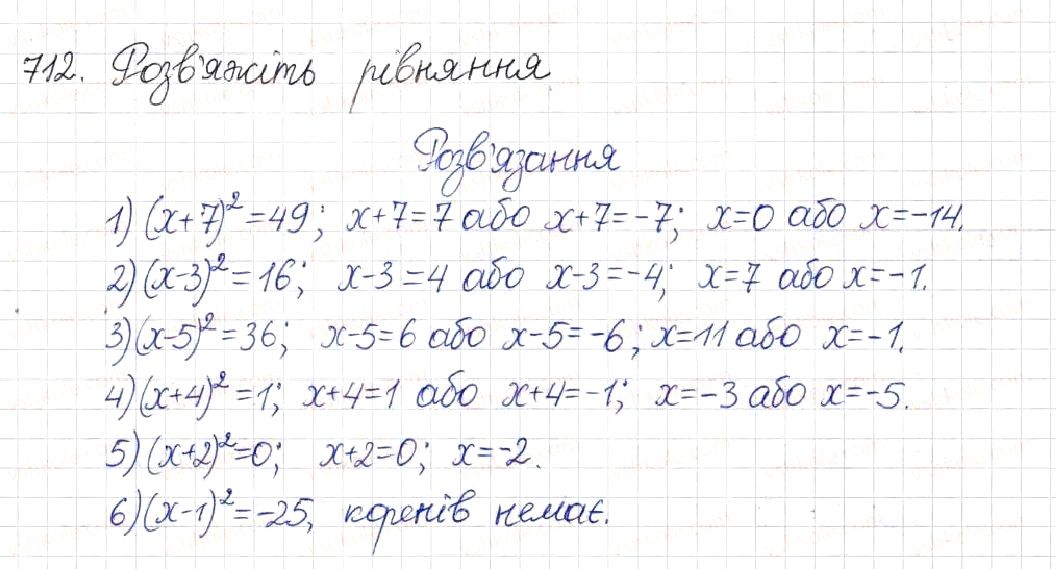 712. Розв'яжіть рівняння
Розв'язання
1) (x+7)²=49; x+7=7 або x+7=-7; x=0 або x=-14.
2) (x-3)²=16; x-3=4 або x-3=-4; x=7 або x=-1.
3) (x-5)²=36; x-5=6 або x-5=-6; x=11 або x=-1.
4) (x+4)²=1; x+4=1 або x+4=-1; x=-3 або x=-5.
5) (x+2)²=0; x+2=0; x=-2.
6) (x-1)²=-25, коренів немає.